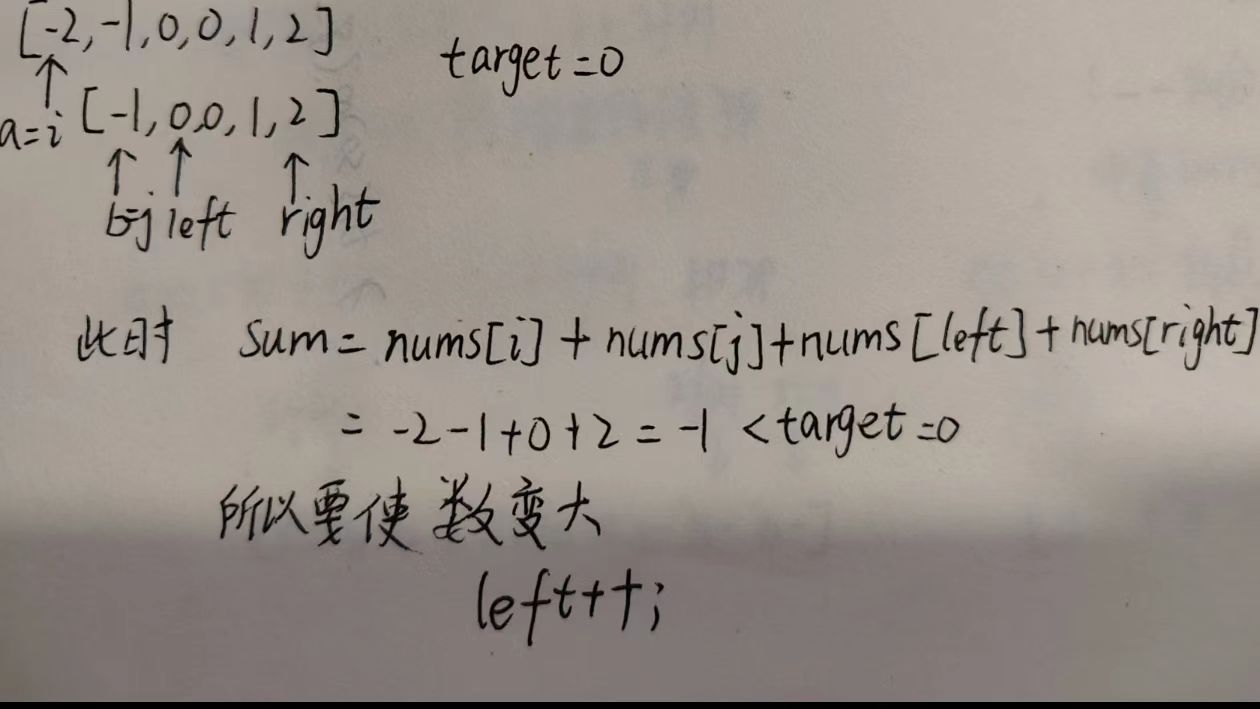 [-2,-1,0,0,1,2]
target=0
a=i [-1,0,0,1,2]
b=j left right
此时 sum= nums[i] + nums[j]+nums [left]+nums[right]
= -2-1+0+2=-1 <target=0
所以要使数变大
left++;